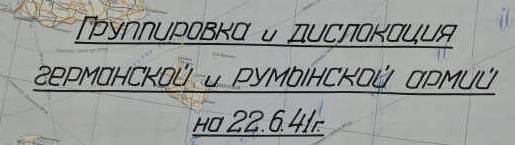 Группировка и дислокация
германской и румынской армий
на 22.6.41г.